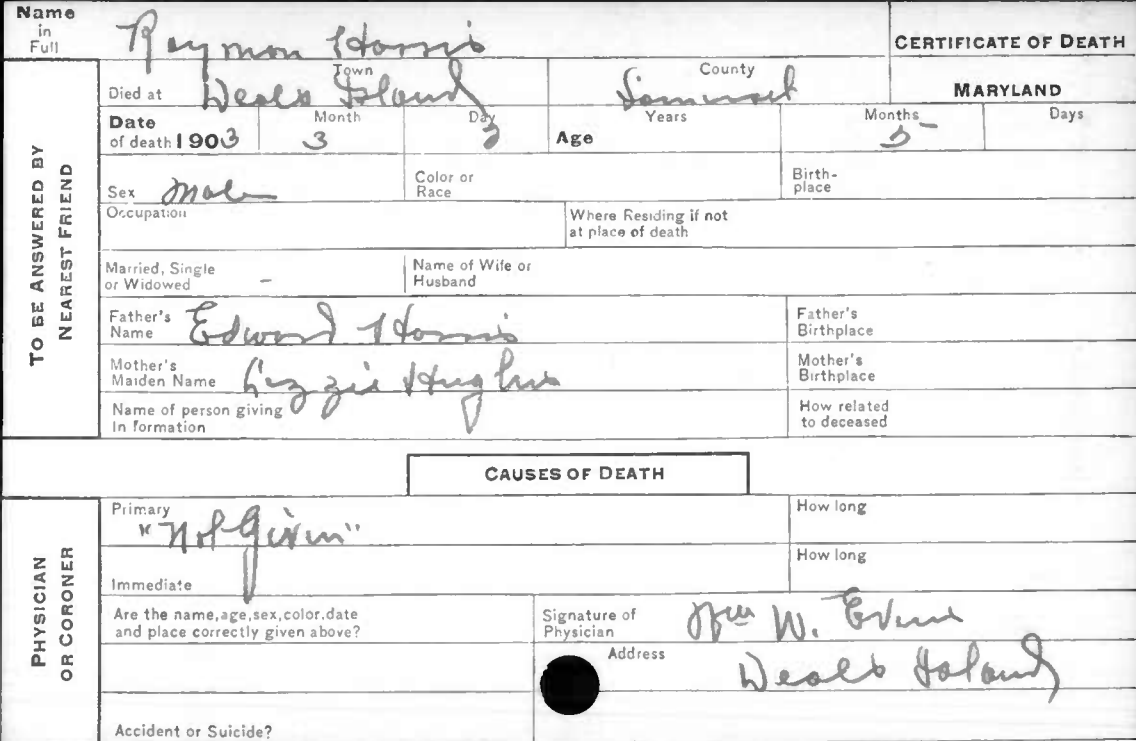 Name in Full Raymon Harris
CERTIFICATE OF DEATH
TO BE ANSWERED BY NEAREST FRIEND
Died at Town Deals Island County Somerset MARYLAND
Date of death 1903 Month 3 Day 3 Age Years Months 5 Days
Sex Male Color or Race Birth-place
Occupation Where Residing if not at place of death
Married, Single or Widowed - Name of Wife or Husband
Father's Name Edward Harris Father's Birthplace
Mother's Maiden Name Lizzie Hughes Mother's Birthplace
Name of person giving In formation How related to deceased
CAUSES OF DEATH
PHYSICIAN OR CORONER
Primary "Not Given" How long
Immediate How long
Are the name,age,sex,color,date and place correctly given above? Signature of Physician Wm W. Evans
Address Deals Island
Accident or Suicide?